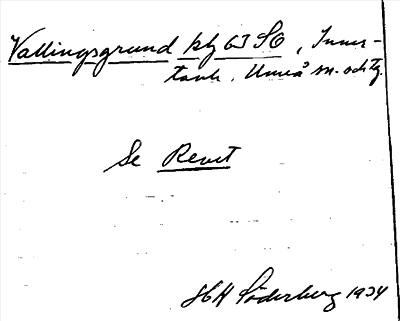 Vallingsgrund kbl 63 SO, Inner-
tavle, Umeå sn. och tg.
Se Revet
HH Söderberg 1934